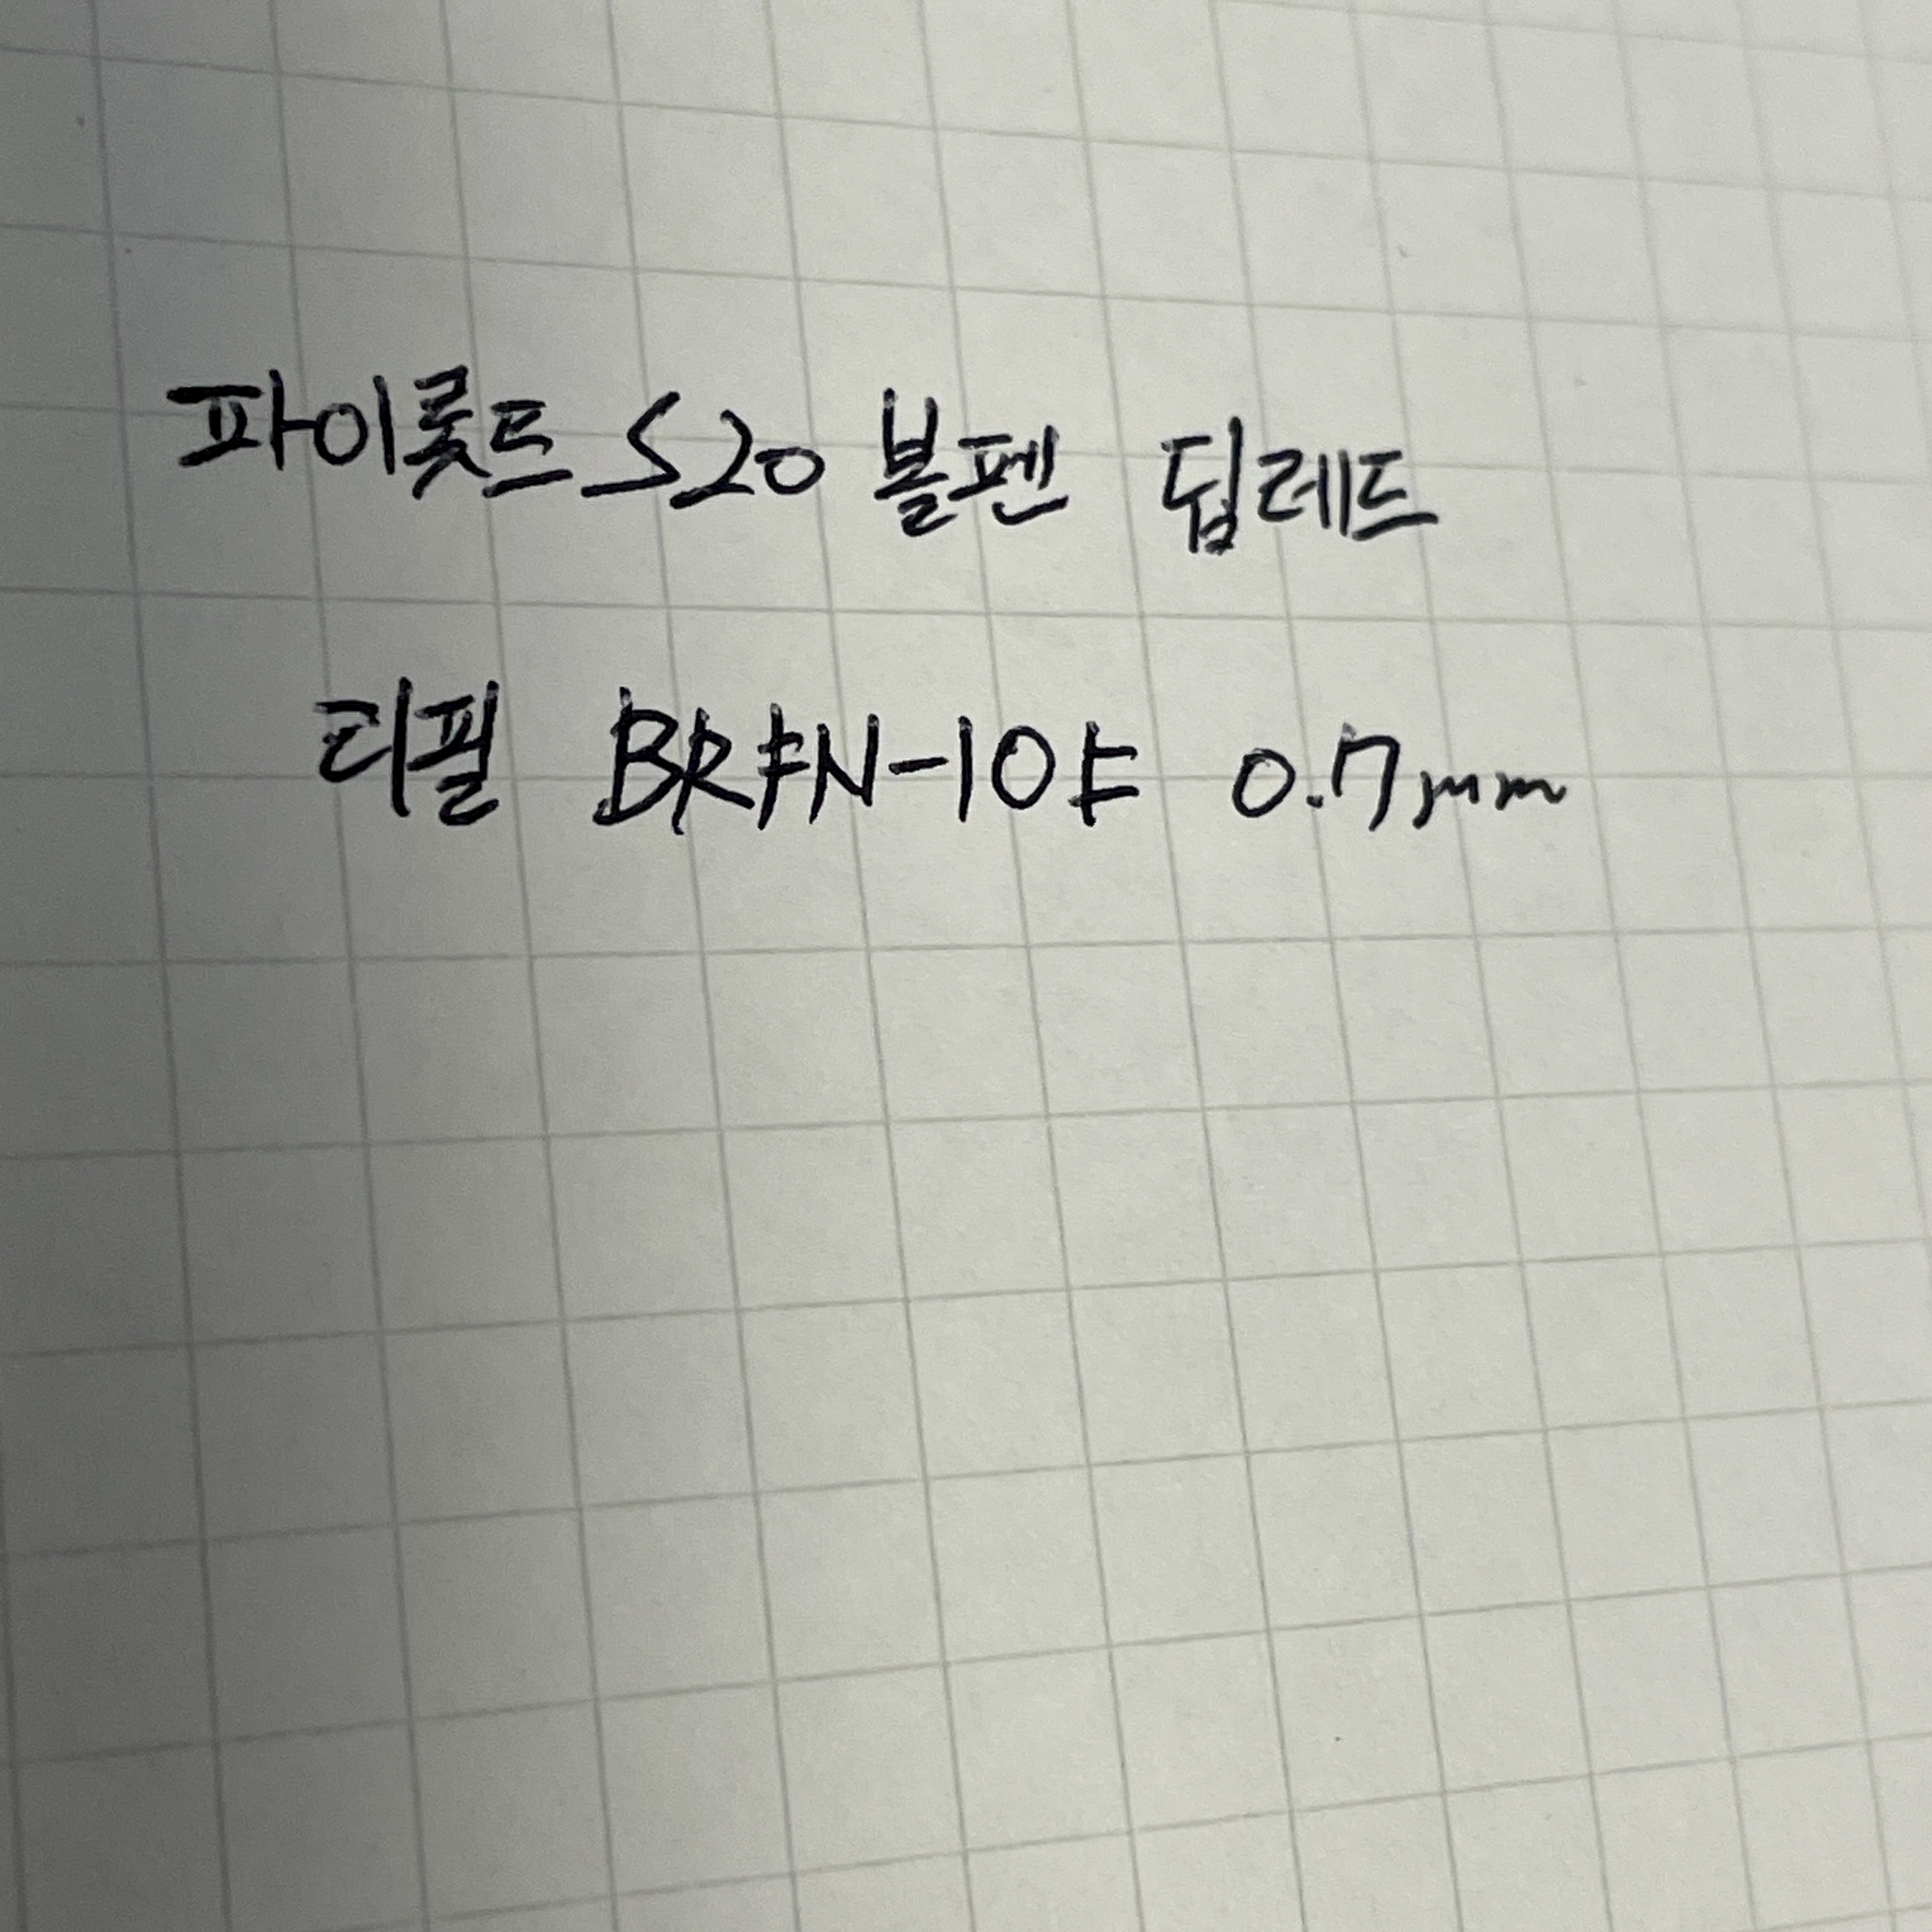 파이롯트 S20 볼펜 딥레드
리필 BRFN-10F 0.7mm